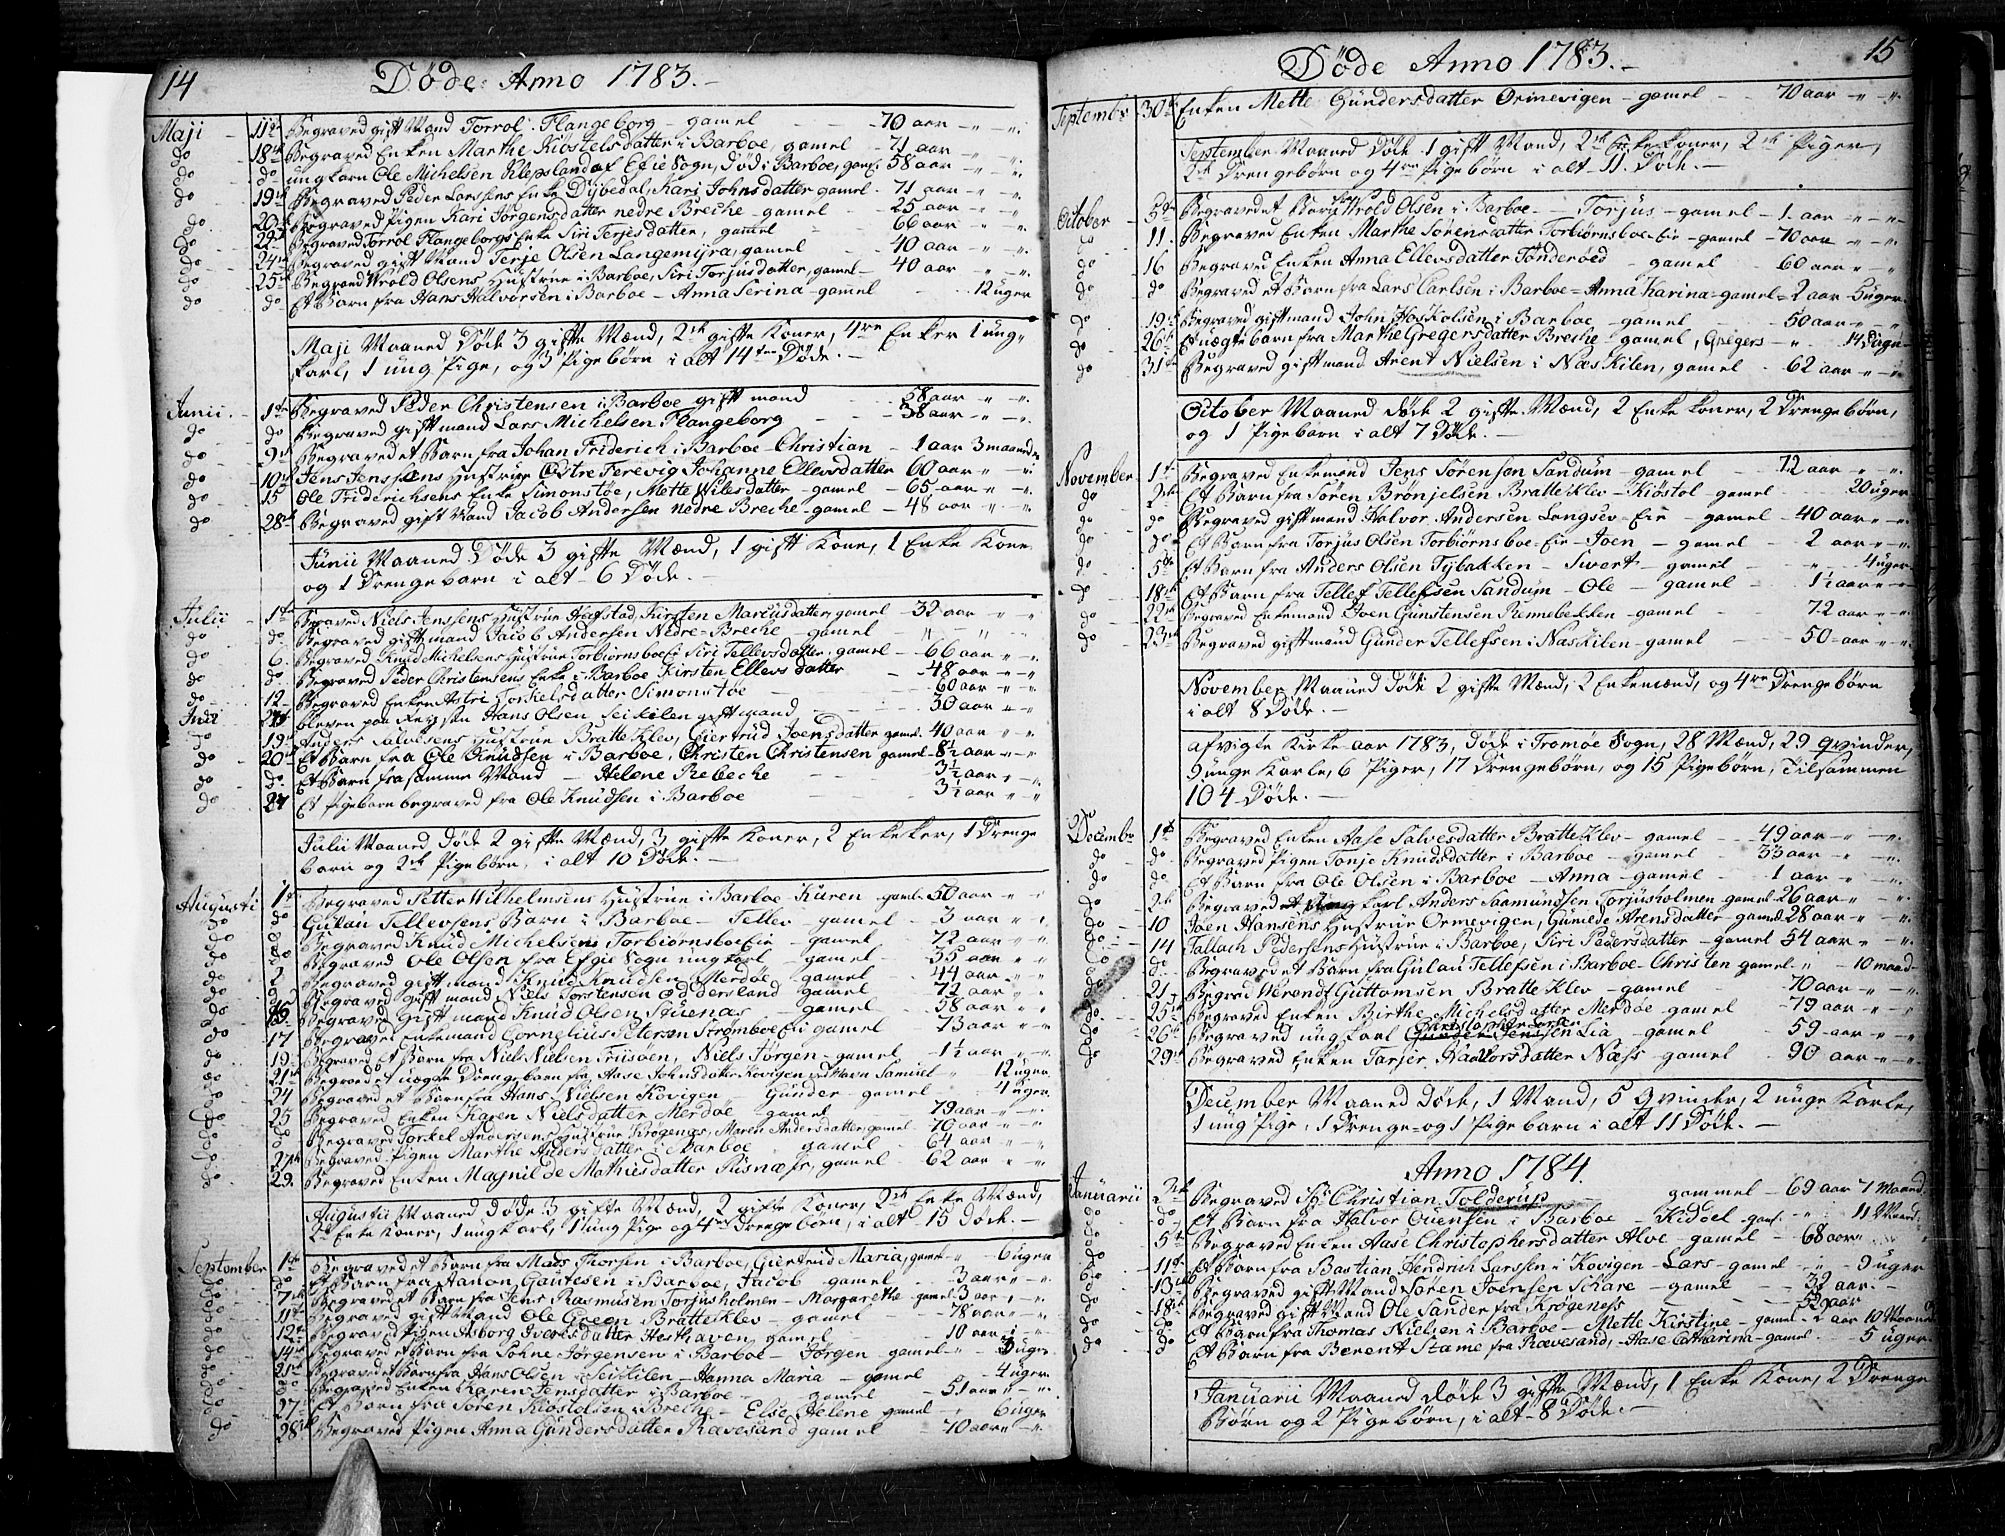 14
Døde Anno 1783.-
Maji - 11te Begraved gift Mand Torrol Flangeborg - gamel - - 70 aar " "
do 18de Begraved Enken Marthe Kiøstelsdatter i Barboe, gamel - 71 aar " "
do do ung karn Ole Michelsen Klepsland af Efie Sogn, Død i Barboe, gaml 58 aar " "
do 19de Begraved Peder Larssens Enke Dybedal, Kari Johnsdatter gamel - 71 aar " "
do 20de Begraved Pigen Kari Jørgensdatter nedre Breche - gamel - 25 aar " "
do 22de Begraved Torrol Flangeborgs Enke Siri Terjesdatter, gamel - 66 aar " "
do 24de Begraved gift Mand Terje Olsen Langemyra, gamel - 40 aar " "
do 25de Begraved Wrold Olsens Hustrue i Barboe, Siri Torjusdatter, gamel - 40 aar " "
do do Et Barn fra Hans Halvorsen i Barboe - Anna Serina - gamel - 12 uger
Maji Maaned Døde 3 gifte Mænd, 2de gifte Koner, 4re Enker 1 ung
karl, 1 ung Pige, og 3 Pigebørn i alt 14ten Døde.-
Junii. - 1te Begraved Peder Christensen i Barboe gift mand - 58 aar " "
do do Begraved gift mand Lars Michelsen Flangeborg - 38 aar " "
do 9de Begraved et Barn fra Johan Friderich i Barboe Christian - 1 aar 3 maaneder
do 10de Jens Jenssens Hustrue Østre Terevig Johanne Ellevsdatter 60 aar " "
do 15 Ole Friderichsens Enke Simonstøe, Mette Nilesdatter - gamel - 65 aar " "
do 28de Begraved gift Mand Jacob Andersen nedre Breche - gamel - 48 aar " "
Junii Maaned Døde 3 gifte Mænd, 1 gift Kone, 1 Enke Kone
og 1 Drengebarn i alt - 6 Døde.-
Julii - 1te Begraved Niels Jenssens Hustrue Hafstad, Kirsten Marcusdatter, gamel - 32 aar " "
do do Begraved gift mand Jacob Andersen Nedre-Breche - gamel - " " "
do 6. Begraved Knud Michelsens Hustrue Torbiørnsboe Siri Tellevsdatter, gamel - 66 aar " "
do do Begraved Peder Christensens Enke i Barboe Kirsten Ellevsdatter - 48 aar " "
do 12 Begraved Enken Astri Torkelsdatter Simonstøe - 60 aar " "
Julii 15 bleven paa Reysen Hans Olsen Seikilen gift mand - 30 aar " "
do 19de Anders Salvesens Hustrue Bratteklev, Giertrud Joensdatter gamel - 40 aar " "
do 20de Et Barn fra Ole Knudsen i Barboe, Christen Christensen gamel 8½ aar " "
do do Et Barn fra samme Mand - Helene Rebecke - 3½ aar " "
do 24 Et Pigebarn begraved fra Ole Knudsen i Barboe - 3½ aar " "
Julii Maaned Døde 2 gifte Mænd, 3 gifte Koner, 2 Enkeker, 1 Drenge
barn og 2de Pigebørn, i alt 10 Døde.-
Augusti 1te Begraved Petter Wilhelmsens Hustrue i Barboe Karen gamel 50 aar " "
do do Gulau Tellevsens Barn i Barboe - Tellev - gamel 3 aar " "
do do Begraved Knud Michelsens Torbiørnsboe Eie - gamel - 72 aar " "
do do Begraved Ole Olsen fra Efgie Sogn ungkarl - gamel - 35 aar " "
do 2 Begraved gift mand Knud Knudsen Merdøe - gamel - 44 aar " "
do 9de Begraved gift mand Niels Torstensen Oddersland gamel - 72 aar " "
do 15 Begraved gift mand Knud Olsen Stuenæs - gamel - 58 aar " "
do 17 Begraved Enkemand Cornelius Petersen Stromboe Eie gamel - 73 aar " "
do 19. Begraved Et Barn fra Niels Nielsen Friisøen, Niels Jørgen - gamel - 1½ aar " "
do 21de Begraved et uægte Drengebarn fra Aase Johnsdatter Kovigen ved Navn Samuel " 12 uger
do 24 Begraved et Barn fra Hans Nielsen Kovigen - Gunder - gamel - 4 uger
do 25 Begraved Enken Karen Nielsdatter Merdøe - gamel - 79 aar " "
do do Begraved Torkel Andersens Hustrue Krøgenæs, Maren Andersdatter, gamel - 70 aar " "
do 27de Begraved Pigen Marthe Andersdatter i Barboe gamel - 64 aar " "
do 29. Begraved Enken Magnilde Mathisdatter Risnæss, gamel - 62 aar " "
Augustii Maaned døde 3 gifte Mænd, 2 gifte Koner, 2de Enke Mænd,
2de Enke Koner, 1 ungkarl, 1 ung Pige og 4re Drengebørn, i alt 15 Døde.-
September 1te Begraved et Barn fra Mads Thorsen i Barboe, Giertrud Maria, gamel " 6 uger
do do Et Barn fra Aanon Gautesen i Barboe, Jacob gamel - 3 aar " "
do 7de Begraved et Barn fra Jens Rasmusen Torjusholmen - Margarethe - gamel 3 aar " "
do 11te Begraved gift Mand Ole Green Bratteklev - gamel - 78 aar " "
do 12te Begraved Pigen Asborg Iversdatter Hesthaven gamel - 10 aar " "
do 14de Begraved et Barn fra Søhne Jørgensen i Barboe - Jørgen - gamel " 3 uger
do 21de Begraved et Barn fra Hans Olsen - Seikilen - Hanna Maria - gamel - 4 uger
do do Begraved Enken Karen Jensdatter i Barboe - gamel - 51 aar " "
do 27de Et Barn fra Søren Kiøstelsen i Breche - Else Helene gamel - 6 uger
do 28de Begraved Pigen Anna Gundersdatter Ravesand gamel - 40 aar " "
15
Døde Anno 1783.-
Septembr 30te Enken Mette Gundersdatter Ormevigen - gamel - 70 aar " "
September Maaned Døde 1 gift Mand, 2de Enke koner, 2de Piger,
2de Drengebørn og 4re Pigebørn i alt - 11 Døde.-
October 5te Begraved et Barn fra Wrold Olsen i Barboe - Torjus - gamel - 1. aar " "
do 11. Begraved Enken Marthe Sørensdatter Torbiørnsboe Eie - gamel - 70 aar " "
do 16 Begraved Enken Anna Ellevsdatter Tønderøed - gamel - 60 aar " "
do do Begraved et Barn fra Lars Carlsen i Barboe = Anna Karina = gamel = 2 aar 5 uger.
do 19de Begraved gift mand John Hoskolsen i Barboe - gamel - 50 aar " "
do 26de Et uægte barn fra Marthe Gregersdatter Breche - gamel, Gregers - " 14 Dage
do 31te Begraved gift mand Arent Nielsen i Næskilen, gamel - 62 aar " "
October Maaned døde 2 gifte Mænd, 2 Enke koner, 2 Drengebørn,
og 1 Pigebarn i alt 7 Døde.-
November 1te Begraved Enkemand Jens Sørensen Sandum - gamel - 72 aar " "
do 2de Et Barn fra Søren Brønjelsen Bratteklev - Kiøstol - gamel - 20 uger
do do Begraved gift mand Halvor Andersen Longsev - Eie - gamel - 40 aar " "
do do Et Barn fra Torjus Olsen Torbiørnsboe-Eie - Joen - gamel - 2 aar " "
do 5te Et Barn fra Anders Olsen Tybakken - Siwert - gamel " 4 uger
do 18de Et Barn fra Tellef Tellefsen Sandum - Ole - gamel - 1½ aar " "
do 22de Begraved Enkemand Joen Gunstensen Rennebekken - gamel - 72 aar " "
do 23de Begraved gift mand Gunder Tellefsen i Naskilen - gamel - 50 aar " "
November Maaned døde 2 gifte Mænd, 2 Enkemænd, og 4re Drengebørn
i alt 8 Døde.-
afvigte Kirke aar 1783, døde i Tromøe Sogn, 28 Mænd, 29 qvinder,
9 unge Karle, 6 Piger, 17 Drengebørn, og 15 Pigebørn, Tilsammen
104 Døde.-
Decembr 1te Begraved Enken Aase Salvesdatter Bratteklev - gamel - 49 aar " "
do do Begraved Pigen Tonje Knudsdatter i Barboe - gamel - 33 aar " "
do do Et Barn fra Ole Olsen i Barboe - Anna - gamel - 1 aar " "
do 2de Begraved ung karl Anders Saamundsen Torjusholmen gamel 26 aar " "
do 10 Joen Hansens Hustrue Ormevigen, Gunnede Arensdatter - gamel 28 aar " "
do 14 Tallach Pedersens Hustrue i Barboe, Siri Pedersdatter - gamel 54 aar " "
do do Begraved et Barn fra Gulau Tellefsen i Barboe - Christen gamel " 10 maad
do 21 Begraved Werendt Guttormsen Bratteklev - gamel - 70 aar " "
do 25de Begraved Enken Birthe Michelsdatter Merdøe - gamel - 79 aar " "
do 26de Begraved ung karl Gunder Jenssen Lia - gamel - 59 aar " "
do 29de Begraved Enken Tarjer Haavorsdatter Næss - gamel - 90 aar " "
December Maaned døde, 1 Mand, 5 Qvinder, 2 unge Karle,
1 ung Pige, 1 Drenge- og 1 Pigebarn i alt 11 Døde.-
Anno 1784.
Januarii 2de Begraved Sr. Christian Tolderup gammel - 69 aar 7 Maaned
do do Et Barn fra Halvor Ouensen i Barboe - Kiddel - gaml - " 11 Maand
do 5te Begraved Enken Aase Christophersdatter Alve - gamel - 68 aar " "
do 11te Et Barn fra Bastian Hendrich Larssen i Kovigen - Lars - gamel " 9 uger
do 13de Begraved gift Mand Søren Joensen Schare - gamel - 32 aar.
do 18de Begraved gift Mand Ole Sander fra Krøgenes - 52 aar
do do Et Barn fra Thomas Nielsen i Barboe - Mette Kirstine - gamel - 2 aar 10 Maaned
do do Et Barn fra Berent Stame fra Ravesand, - Aase Catharina - gamel - 5 uger
Januarii Maaned døde 3 gifte Mænd, 1 Enke Kone, 2 Drenge
Børn og 2 Pigebørn, i alt - 8 Døde.-